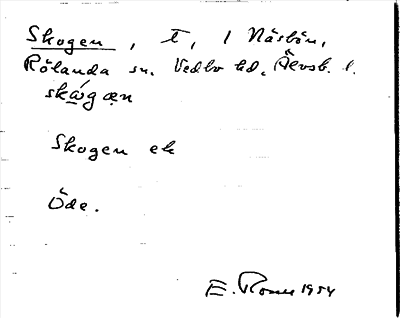 Skogen, t, 1 Näsbön,
Rölanda sn. Vedbo hd. Älvsb. l.
skωǵ æn
Skogen ek
Öde.
E. 1954